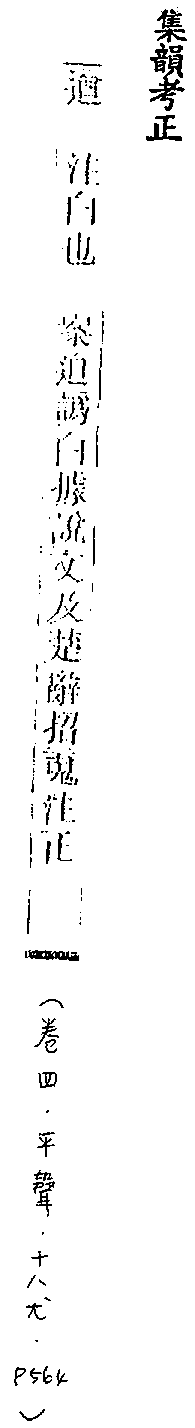 集韻考正
遒　注白也　案迫譌白據說文及楚辭招魂注正
（卷四．平聲．十八尤．P564）